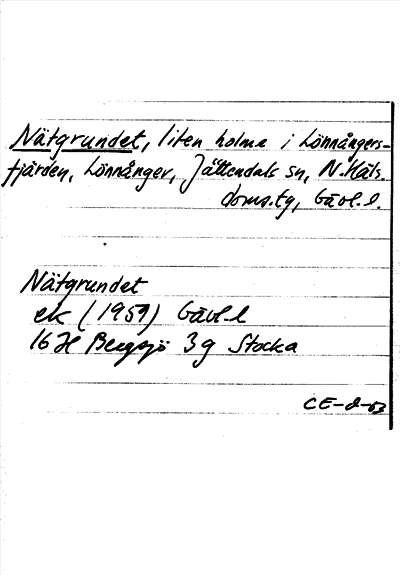 Nätgrundet, liten holme i Lönnångers-
fjärden, Lönnånger, Jättendals sn, N. Häls.
doms.tg, Gävl. l.
Nätgrundet
ek (1959) Gävl. l
16 H Bergsjö 3 g Stocka